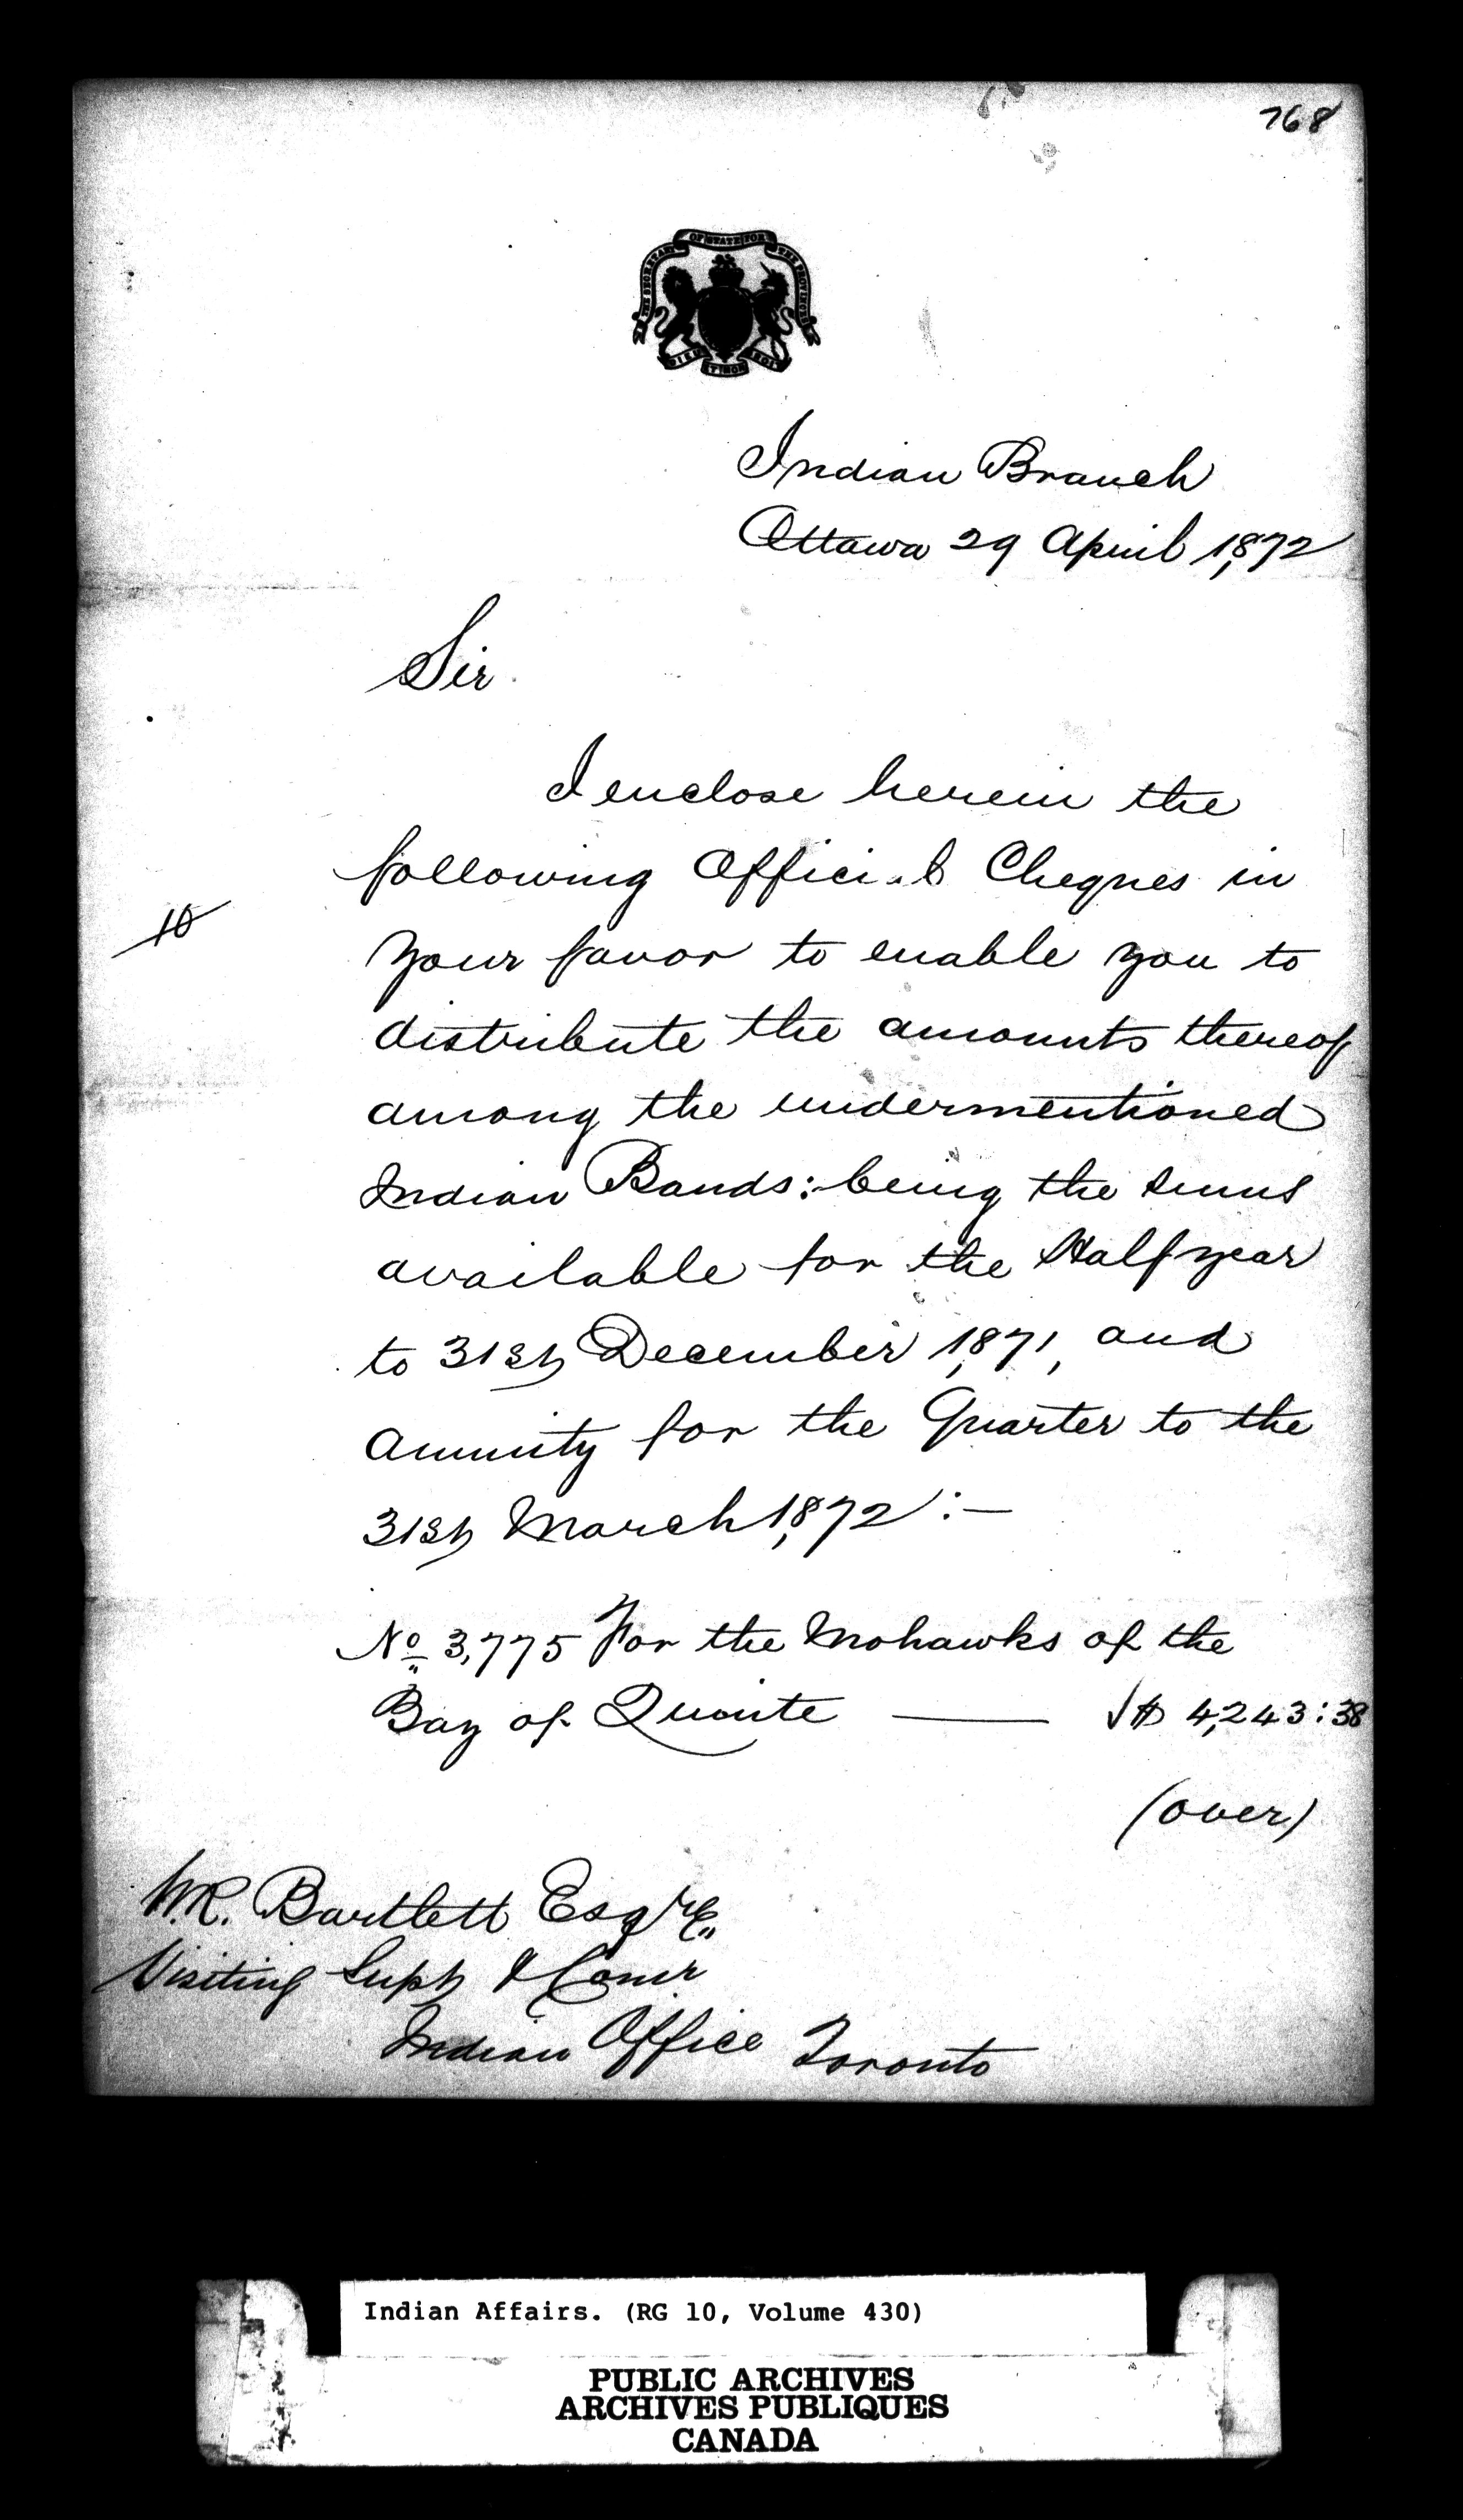 768
THE SECRETARY OF STATE FOR THE PROVINCES
DIEU ET MON DROIT
Indian Branch
Ottawa 29 April 1,872
Sir
I enclose herein the
following Official Cheques in
10
your favor to enable you to
distribute the amounts thereof
among the undermentioned
Indian Bands: being the sums
available for the Half year
to 31st December 1,871, and
annuity for the Quarter to the
31st March 1,872 :—
No 3,775 For the Mohawks of the
Bay of Quinte —— $ 4,243:38
(over)
W.R. Bartlett Esqre
Visiting Supt & Comr
Indian Office Toronto
Indian Affairs. (RG 10, Volume 430)
PUBLIC ARCHIVES
ARCHIVES PUBLIQUES
CANADA